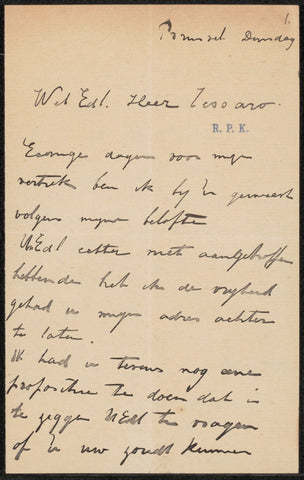 1.
Brussel Dinsdag
Wel Edl. Heer Tessaro.
R. P. K.
Eenige dagen voor mijn
vertrek ben ik bij U geweest
volgens mijne belofte
UEdl echter niet aangetroffen
hebbende heb ik de vrijheid
gehad u mijn adres achter
te laten.
Ik had u tevens nog eene
propositie te doen dat is
te zeggen UEdl te vragen
of U uw zoudt kunnen